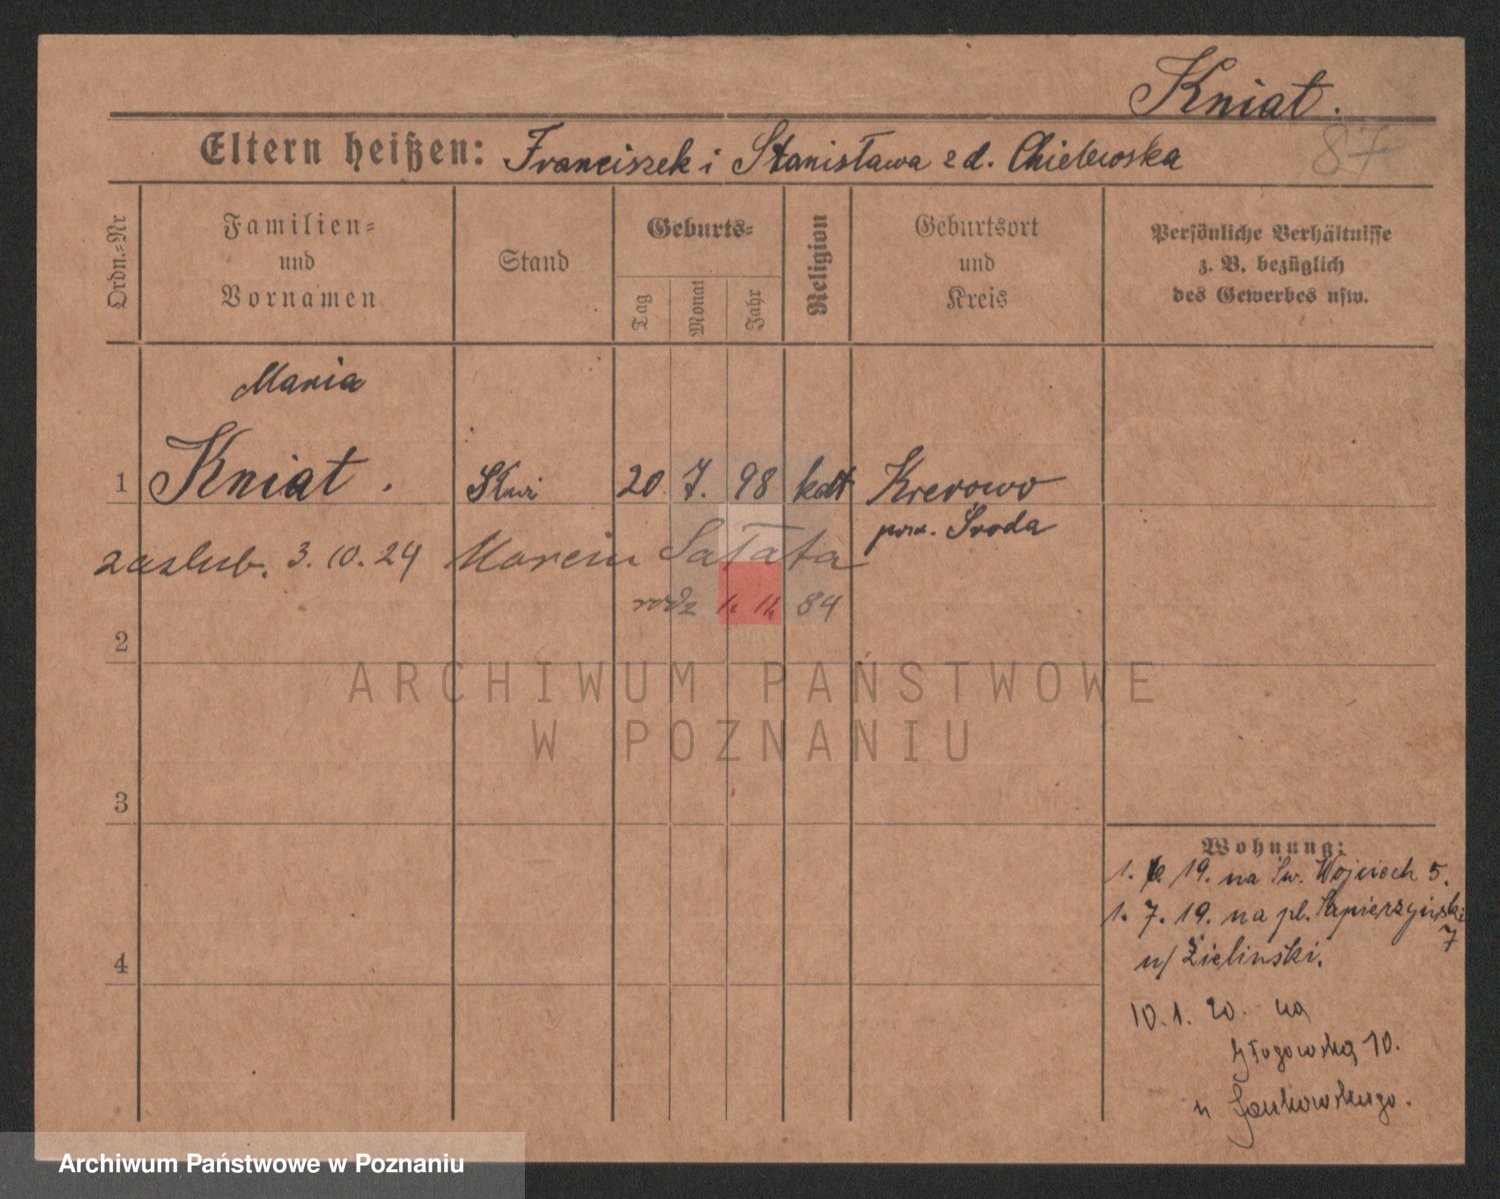 Kniat.
87
Eltern heißen: Franciszek i Stanisława z d. Chielewska
Ordn.-Nr
Familien- und Vornamen
Stand
Geburts-
Tag
Monat
Jahr
Religion
Geburtsort und Kreis
Persönliche Verhältnisse z. B. bezüglich des Gewerbes usw.
Maria
1 Kniat. 20 7. 98 kat Krerowo
pow. Środa
zaslub. 3. 10. 24 Marcin Sałata
rodz 84
2
ARCHIWUM PAŃSTWOWE
W POZNANIU
3
4
Wohnung:
1. 19. na Św. Wojciech 5.
1. 7. 19. na pl. Sapierzyński 7
u/ Zieliński.
10. 1. 20. na
Głogowską 10.
u Jankowskiego.
Archiwum Państwowe w Poznaniu